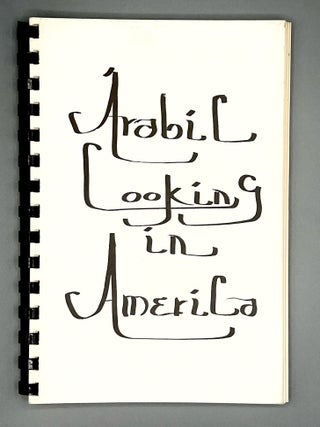 Arabic
Cooking
in
America